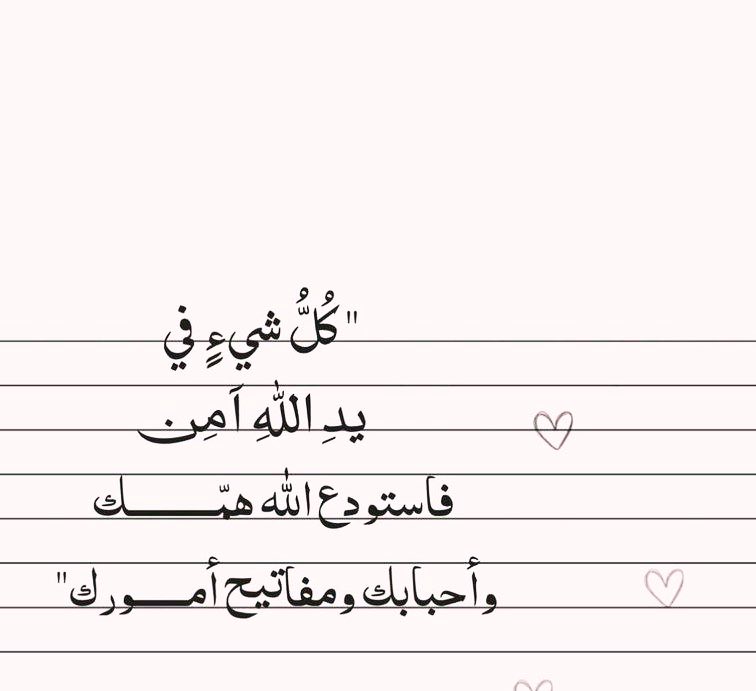 "كُلُّ شيءٍ في
يدِ اللهِ آمِن
فاستودع الله همّـــــــك
وأحبابك ومفاتيح أمـــــورك"